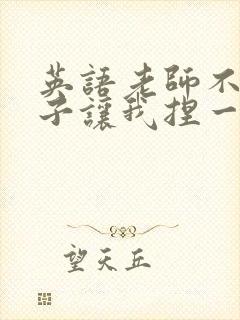 英語老師不
子讓我捏一
望天丘